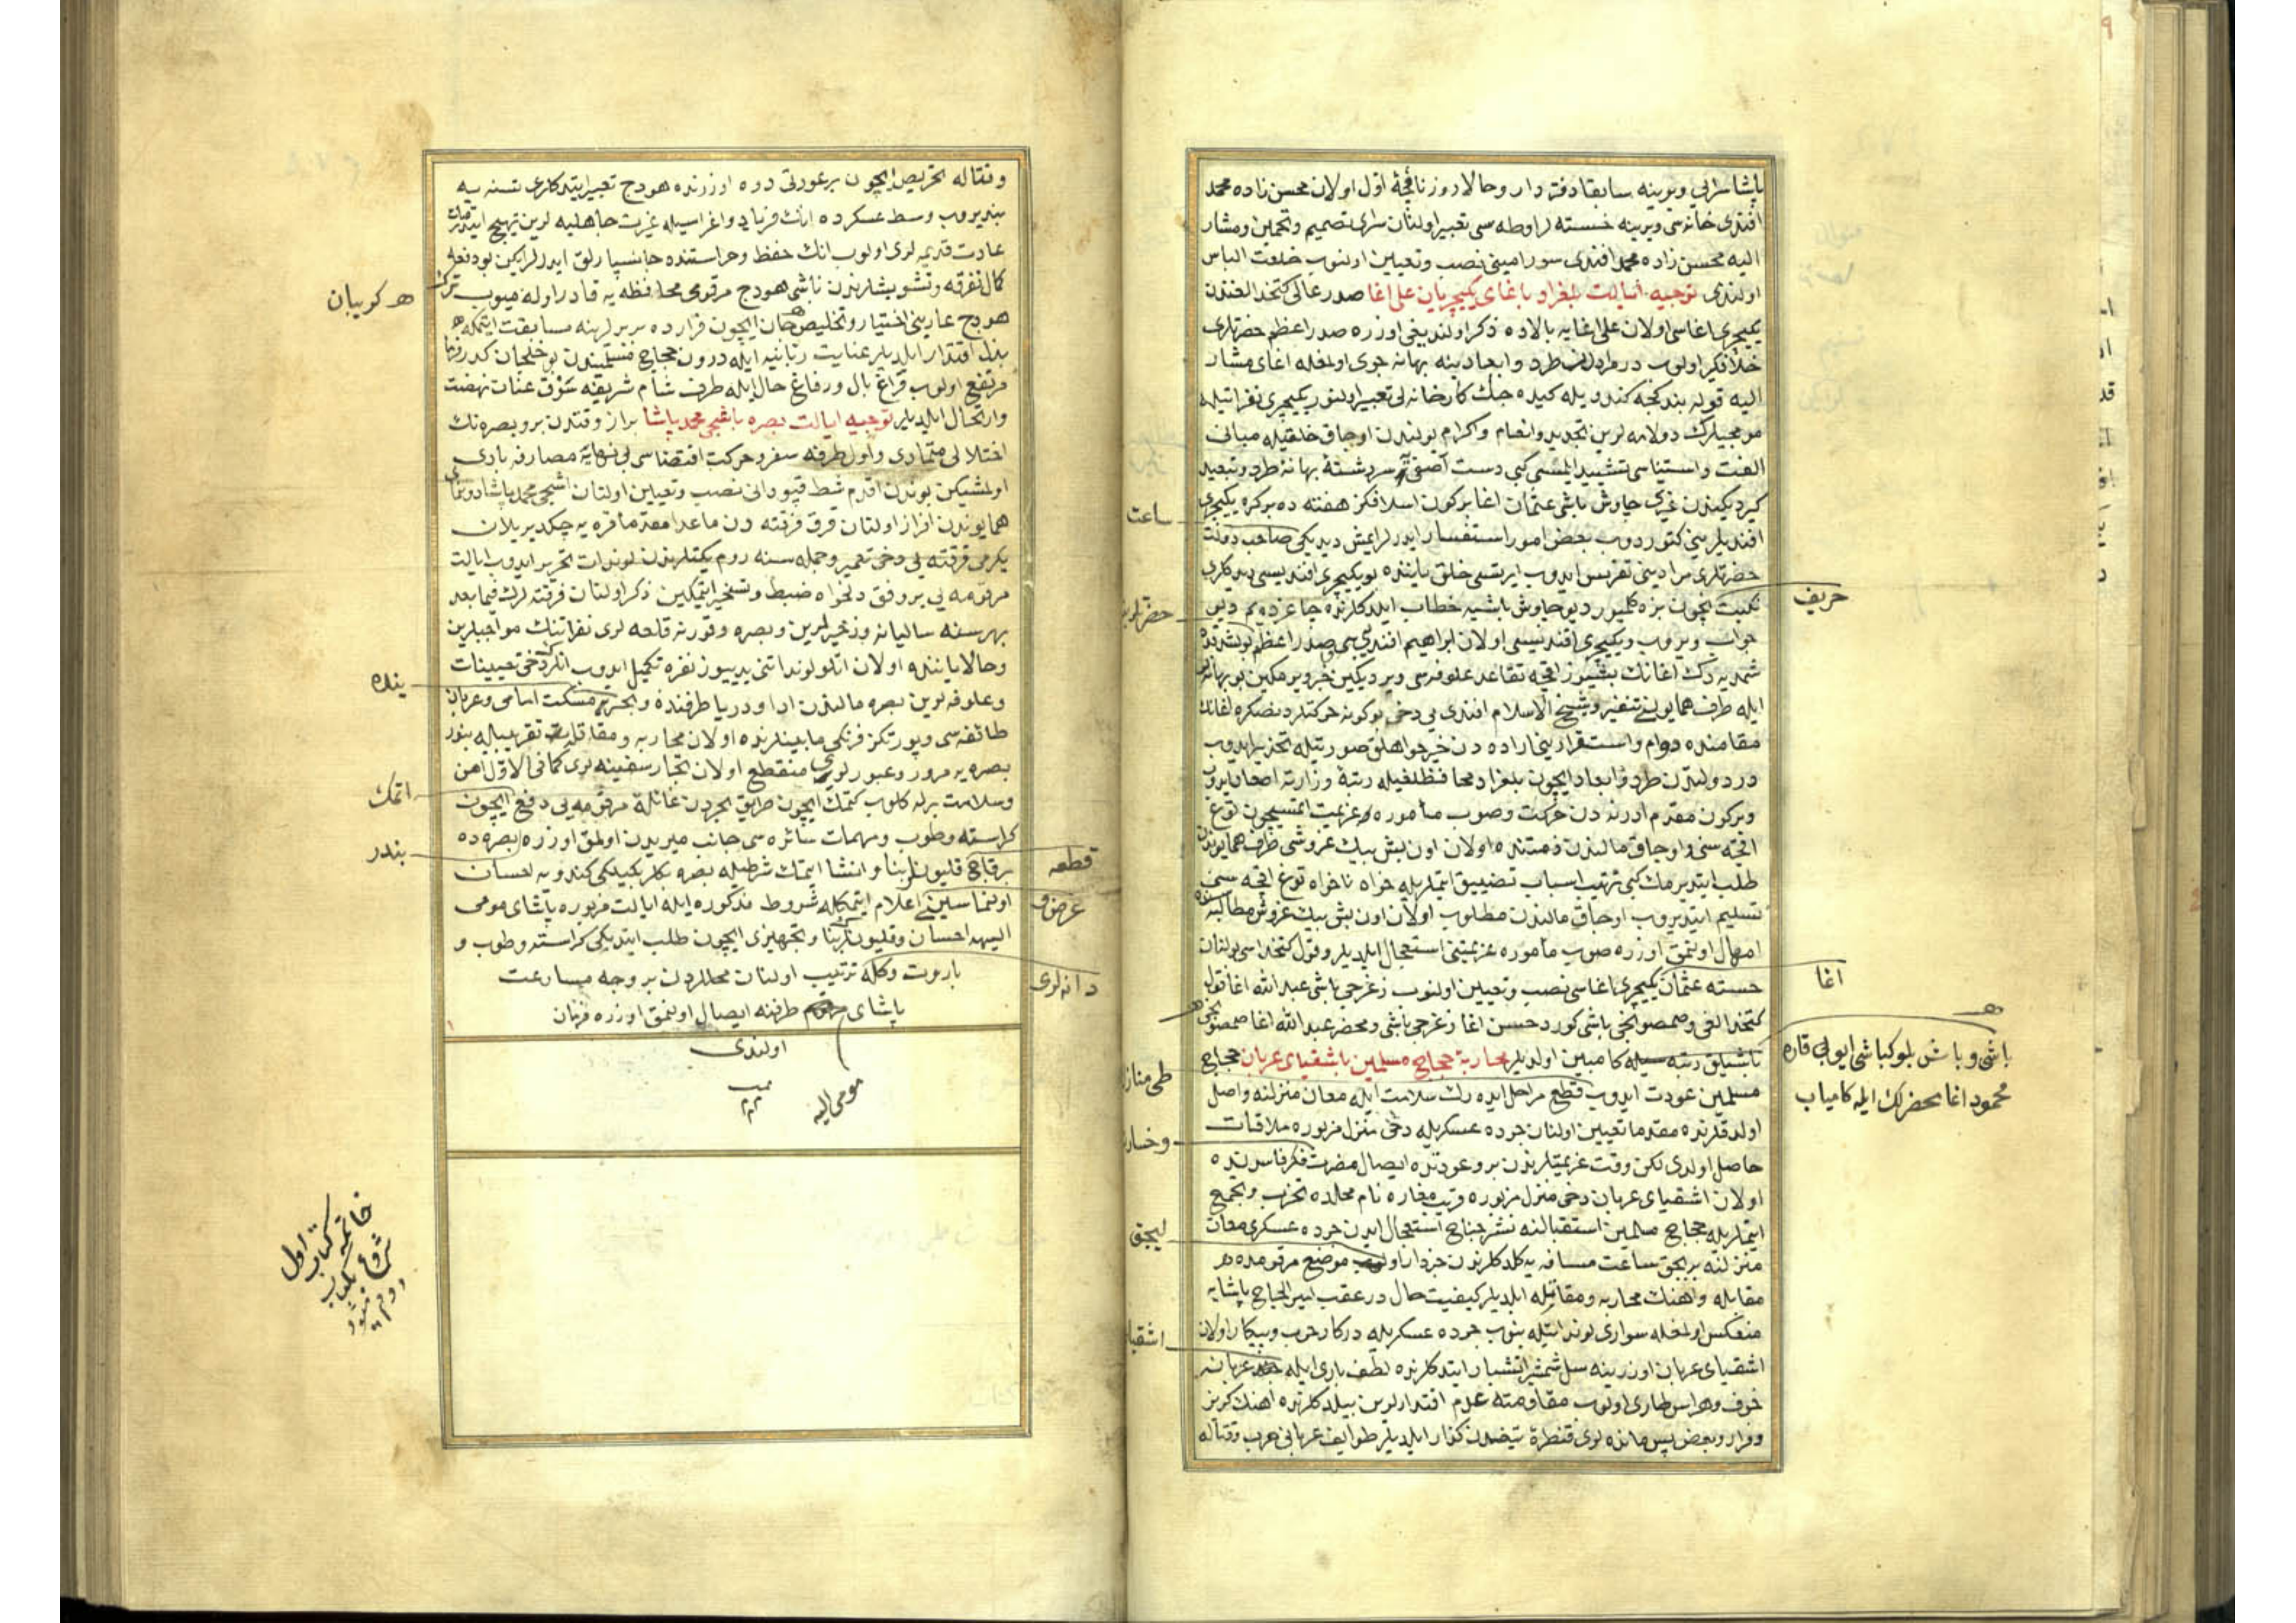 پاشا سرایی ویرینه سابقا دفتردار وحالا روزنامچهٔ اول اولان محسن زاده محمد
افندی خانه‌سی ویرینه خسته‌لر اوطه‌سی تعبیر اولنان سرای تصمیم وتخمین ومشار
الیه محسن زاده محمد افندی سور امینی نصب وتعیین اولنوب خلعت الباس
اولندی توجیه ایالت بلغراد با غای یکیچریان علی اغا صدر عالی کتخدالغندن
یکیچری اغاسی اولان علی اغایه بالاده ذکر اولندیغی اوزره صدر اعظم حضرتلری
الیه قوله بند کیجه کندویله کیده جك کارخانه‌لی تعبیر اولنور یکیچری نفراتیله
الفت واستیناسی تشیید ایلمسی کبی دست آصفی‌یه سررشتهٔ بهانهٔ طرد وتبعید
کیردیکیندن غیری چاوش باشی عثمان اغا برکون اسلافکز هفته ده بر کره یکیچری
افندیلرینی کتوردوب بعض امور استفسار ایدرلر ایمش دیدیکی صاحب دولت
حضرتلری مرادینی تفرس ایدوب ایرتسی خلق یاننده بو یکیچری افندیسی دیدکلری
نکبت ایچون بزه کلمیور دیو چاوش باشی‌یه خطاب ایلدکلرنده چاغرده‌یم دیو
جواب ویروب ویکیچری افندیسی اولان ابراهیم افندی‌یی صدر اعظم
ایله طرف همایونی تنفیر وشیخ الاسلام افندی‌یی دخی بو کونه حرکتلردنصکره لغانك
مقامنده دوام واستقرارینی اراده دن خیرخواهلق صورتیله تحذیر ایدوب
در دولتدن طرد وابعاد ایچون بلغراد محافظلغیله رتبهٔ وزارته اصعاد
وبرکون مقدم ادرنه دن حرکت وصوب مأموره عزیمت ایتمسیچون توغ
اقچه سنی واوجاق مالندن ذمتنده اولان اون بش بیك غروشی طرف همایوندن
طلب ایتدیرمك کبی ترتیب اسباب تضییق ایتملریله خواه ناخواه توغ اقچه سنی
تسلیم ایتدیروب اوجاق مالندن مطلوب اولان اون بش بیك غروش مطالبه
امهال اولنمق اوزره صوب مأموره عزیمتنی استعجال ایلدیلر وقول کتخداسی بولنان
خسته عثمان یکیچری اغاسی نصب وتعیین اولنوب زغرجی باشی عبد الله اغا قول
کتخدالغی وصمصونجی باشی کورد حسن اغا زغرجی باشی ومحضر عبد الله اغا صمصونجی
باشیلق رتبه سیله کامبین اولدیلر محاربهٔ حجاج مسلمین با اشقیای عربان حجاج
مسلمین عودت ایدوب قطع مراحل ایده رك سلامت ایله معان منزلنه واصل
اولدقلرنده مقدما تعیین اولنان جرده عسکریله دخی منزل مزبوره ملاقات
حاصل اولدی لکن وقت عزیمتلرندن برو عودتده ایصال مضرت فکر فاسدنده
اولان اشقیای عربان دخی منزل مزبوره قریب مغاره نام محلده تحزب وتجمع
ایتملریله حجاج مسلمین استقبالنه نشر جناح استعجال ایدن جرده عسکری معان
منزلنه بر بچق ساعت مسافه یه کلدکلرندن خبردار اولوب موضع مرقومده
مقابله واهنك محاربه ومقاتله ایلدیلر کیفیت حال در عقب امیر الحاج پاشایه
منعکس اولمغله سواری لونداتیله بنوب جرده عسکریله درکار حرب وپیکار اولان
اشقیای عربان اوزرینه سل شمشیر انتشار ایتدکلرنده لطف باری ایله عربانه
خوف وهراس طاری اولوب مقاومته عدم اقتدارلرین بیلدکلرنده اهنك کریز
وفرار وبعض پس مانده لری قنطرهٔ تیغدن کذار ایلدیلر طوایف عربانی حرب وقتاله
ساعت
حضرتلری
حریف
اغا
باشی وباش بلوکباشی ایوبلی قاره
محمود اغا محضرلك ایله کامیاب
طی منازل
وخسارت
لیجق
اشقیا
وقتاله تحریص ایچون بر عورتی دوه اوزرنده هودج تعبیر ایتدکلری نسنه یه
بندیروب وسط عسکرده انك فریاد واغراسیله غیرت جاهلیه لرین تهییج ایتدیرمك
عادت قدیمه لری اولوب انك حفظ وحراستنده جانسپارلق ایدرلر ایکن بو دفعه
کمال تفرقه وتشویشلرندن ناشی هودج مرقومی محافظه یه قادر اوله میوب ترك
هودج عارینی اختیار وتخلیص جان ایچون فرارده بربرلرینه مسابقت ایتمکه
بذل اقتدار ایلدیلر عنایت ربانیه ایله درون حجاج مسلمیندن بو خلجان کدر
مرتفع اولوب فراغ بال ورفاغ حال ایله طرف شام شریفه سوق عنان نهضت
وارتحال ایلدیلر توجیه ایالت بصره باشجی محمد پاشا براز وقتدن برو بصره نك
اختلالی متمادی واول طرفه سفر وحرکت اقتضاسی بی نهایه مصارفه بادی
اولمشیکن بوندن اقدم شط قپودانی نصب وتعیین اولنان اشجی محمد پاشا دونمای
همایوندن افراز اولنان قرق فرقته دن ماعدا مقدما قره یه چکدیریلان
یکرمی فرقته یی دخی تعمیر وجمله سنه روم یکتلرندن لوندات تحریر ایدوب ایالت
مرقومه یی بر وفق دلخواه ضبط وتسخیر ایتمکین ذکر اولنان فرقته لرك فیما بعد
بهر سنه سالیانه وذخیرلرین وبصره وقورنه قلعه لری نفراتنك مواجبلرین
وحالا یاننده اولان اتلو لونداتنی یدییوز نفره تکمیل ایدوب انلرك دخی تعیینات
وعلوفه لرین بصره مالندن ادا ودریا طرفنده وبحرده مسکت امامی وعربان
طائفه سی وپورتکز فرنکی مابینلرنده اولان محاربه ومقاتله تقریبیله بندر
بصره یه مرور وعبورلری منقطع اولان تجار سفینه لری کمافی الاول امن
وسلامت برله کلوب کتمك ایچون طریق بحردن غائلهٔ مرقومه یی دفع ایچون
کراسته وطوب ومهمات سائره سی جانب میریدن اولمق اوزره بصره ده
برقاچ قلیونلر بنا وانشا ایتمك شرطیله بصره بکلربکیلکی کندویه احسان
اولنماسینی اعلام ایتمکله شروط مذکوره ایله ایالت مزبوره پاشای مومی
الیهه احسان وقلیونلر بنا وتجهیزی ایچون طلب ایتدیکی کراسته وطوب و
باروت وکله ترتیب اولنان محللردن بر وجه مسارعت
پاشای مرقوم طرفنه ایصال اولنمق اوزره فرمان
اولندی
مومی الیه
هر کوبیان
ینده
اتمك
بندر
قطعه
عرض و
دانه لری
خاتمه کتاب اول